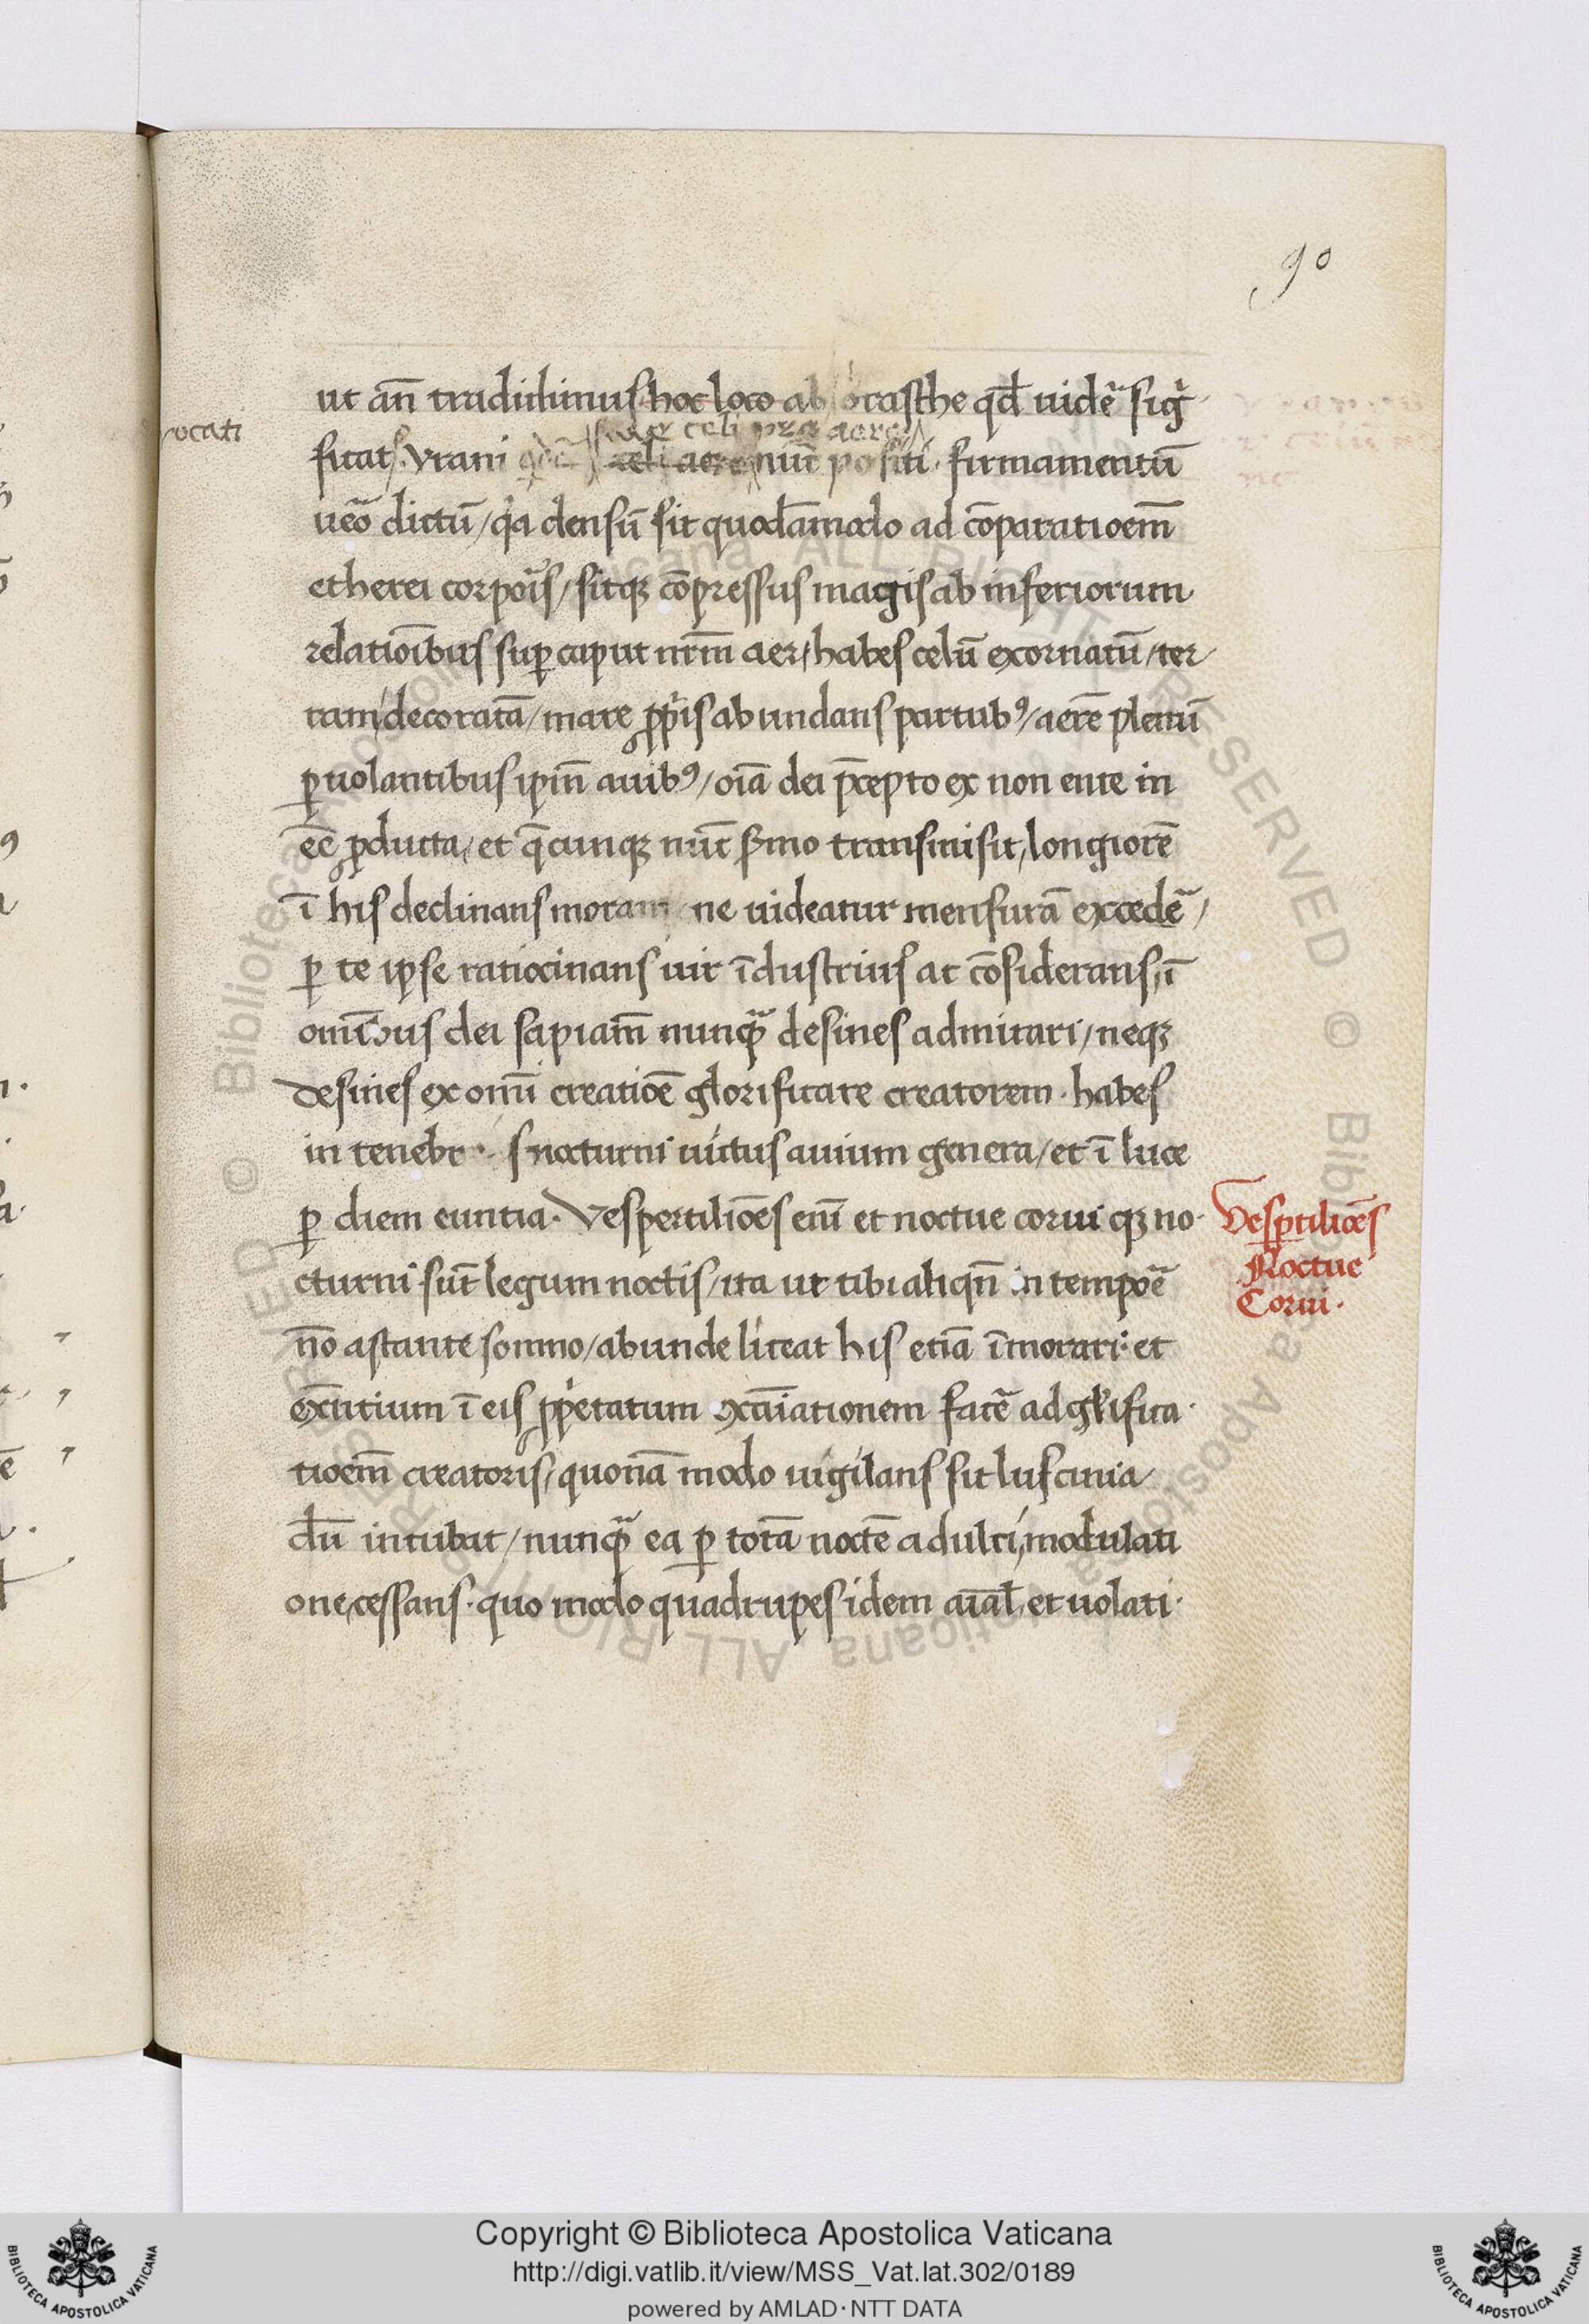 90
ut an̄ tradidimus hoc loco ab orasthe qd̄ uidē sig̃
ficat Vrani celi aere nūc positi. firmamentū
ueō dictū/ qͥa densū sit quodāmodo ad cōparatioem̄
etherei corpoīs/ sitqꝫ cōpressus magis ab inferiorum
relatioībus suꝑ caput nrm̄ aer/ habes celū exornatū/ ter
ram decoratā/ mare ꝓpͥis abundans partubꝰ/ aerē plenū
ꝑuolantibus ipm̄ auibꝰ/ oīa dei p̄cepto ex non ente in
eē ꝓducta/ et q̄cunqꝫ nūc ẜmo transmisit/ longiorē
ī his declinans moram/ ne uideatur mensurā excedē/
ꝑ te ipse ratiocinans uir īdustrius ac cōsiderans/ ī
omībus dei sapiam̄ nunqᷓ desines admirari/ neqꝫ
desines ex omī creatiōe glorificare creatorem. habes
in tenebr s nocturni uictus auium genera/ et ī luce
ꝑ diem euntia. Vespertiliōes enī et noctue corui qꝫ no-
cturni sūt legum noctis/ ita ut tibi aliqn̄ in tempoē
nō astante somno/ abunde liceat his etiā īmorari. et
exn̄titium ī eis ꝓpͥetatum exāīationem facē ad gl̄ifica-
tioem̄ creatoris/ quonā modo uigilans sit luscinia
dū incubat/ nunqᷓ ea ꝑ totā noctē a dulci modulati
one cessans. quo modo quadrupes idem aīal et uolati-
Vesꝑtiliōes
Noctue
Corui.
ocati
Copyright © Biblioteca Apostolica Vaticana
http://digi.vatlib.it/view/MSS_Vat.lat.302/0189
powered by AMLAD · NTT DATA
BIBLIOTECA APOSTOLICA VATICANA
BIBLIOTECA APOSTOLICA VATICANA